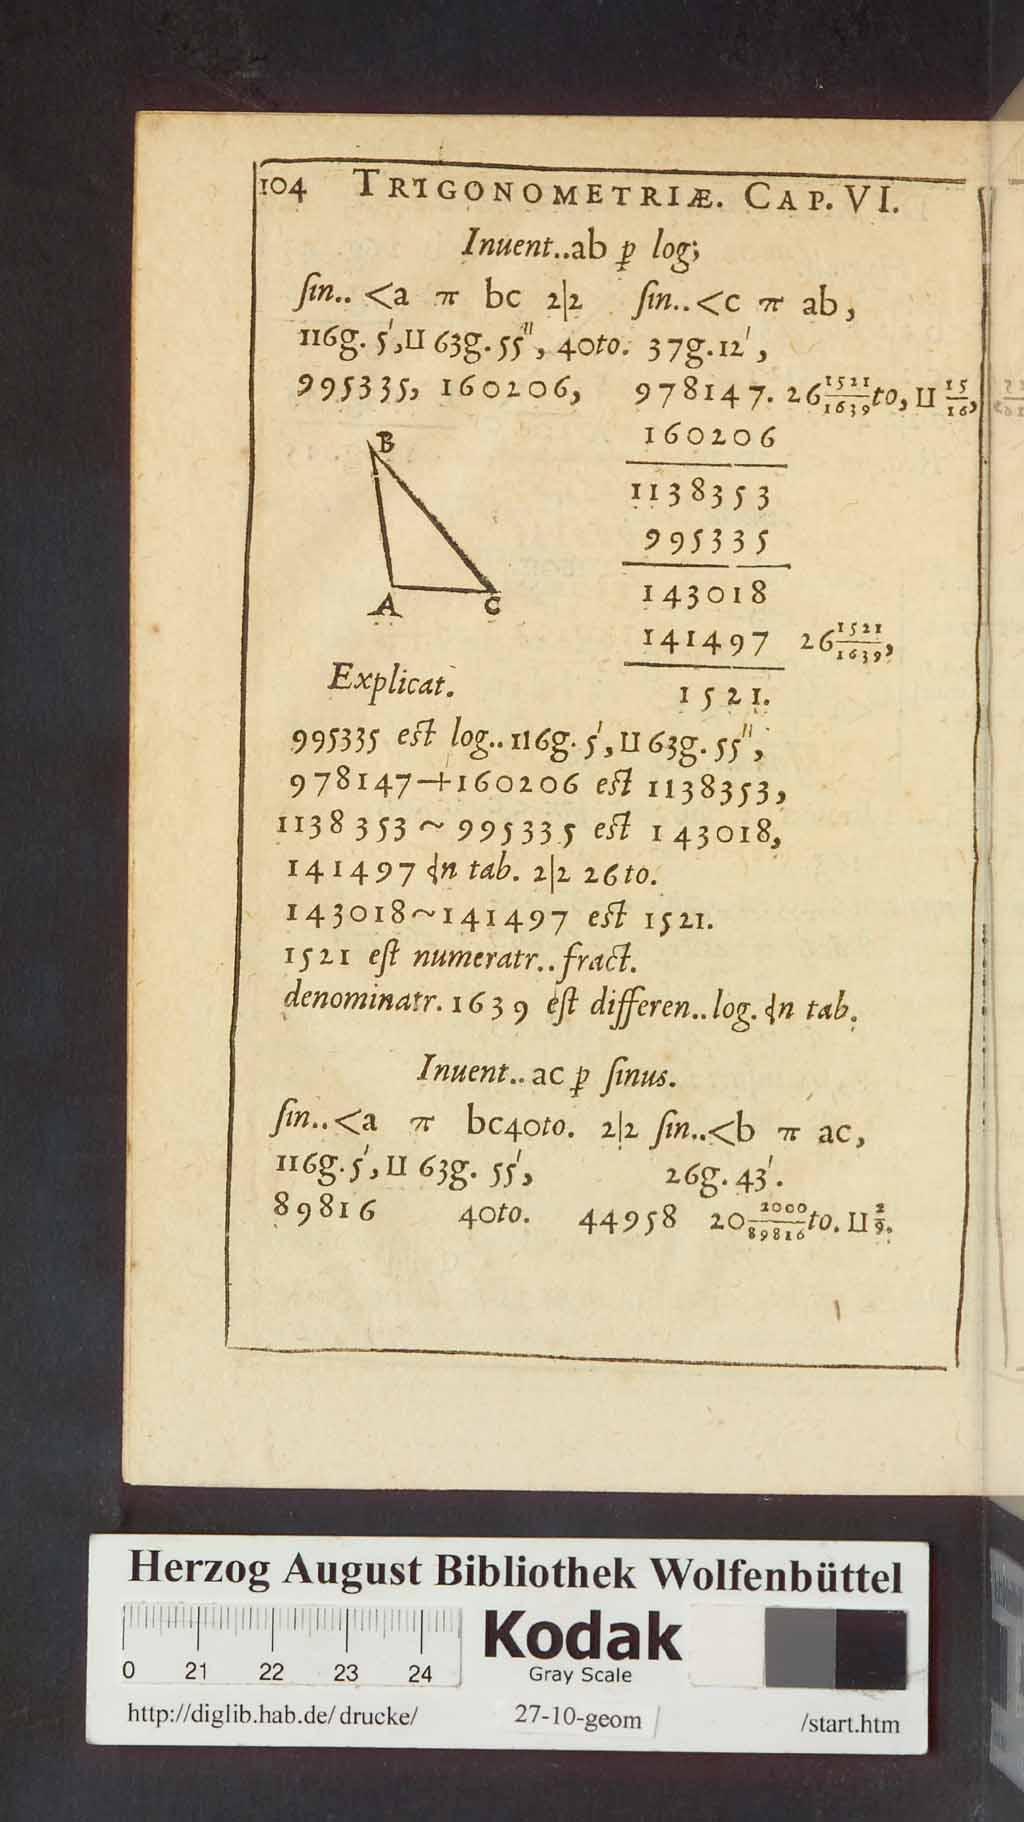 104 TRIGONOMETRIÆ. CAP. VI.
Inuent..ab ꝑ log;
ſin.. <a π bc 2|2 ſin..<c π ab,
116g. 5', II 63g. 55'', 40to. 37g.12',
995335, 160206, 978147. 26 1521/1639 to, II 15/16,
160206
1138353
995335
143018
141497 26 1521/1639,
1521.
B
A C
Explicat.
995335 eſt log..116g. 5', II 63g. 55'',
978147+160206 eſt 1138353,
1138353 ~ 995335 eſt 143018,
141497 in tab. 2|2 26to.
143018~141497 eſt 1521.
1521 eſt numeratr..fract.
denominatr. 1639 eſt differen..log. in tab.
Inuent.. ac ꝑ ſinus.
ſin..<a π bc40to. 2|2 ſin..<b π ac,
116g.5', II 63g. 55', 26g. 43'.
89816 40to. 44958 20 2000/89816 to. II 2/9.
Herzog August Bibliothek Wolfenbüttel
0 21 22 23 24
Kodak
Gray Scale
http://diglib.hab.de/drucke/ 27-10-geom /start.htm